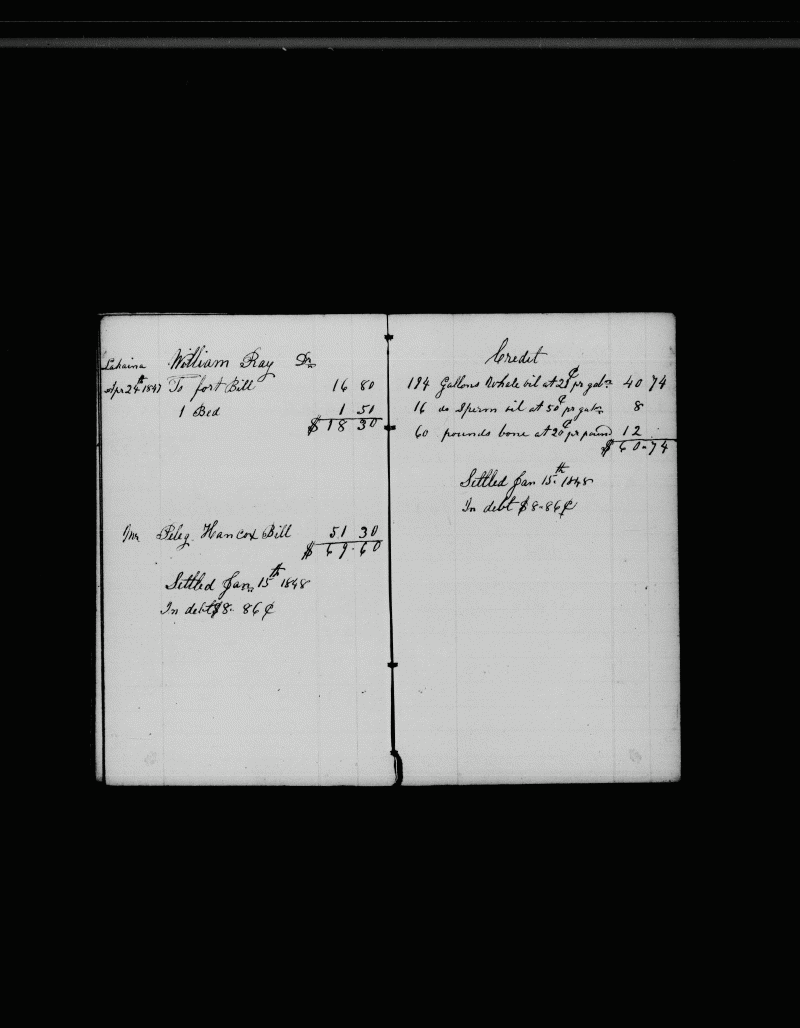 Lahaina William Ray Dr
Apr 24th 1847 To fort Bill 16 80
1 Bed 1 50
$ 18 30
Mr Peleg Hancox Bill 51 30
$ 69.60
Settled Jan 15th 1848
In debt $8. 86 ¢
Credit
194 Gallons Whale oil at 21¢ pr galn 40 74
16 do Sperm oil at 50¢ pr galn 8
60 pounds bone at 20¢ pr pound 12
$ 60.74
Settled Jan 15th 1848
In debt $8.86¢